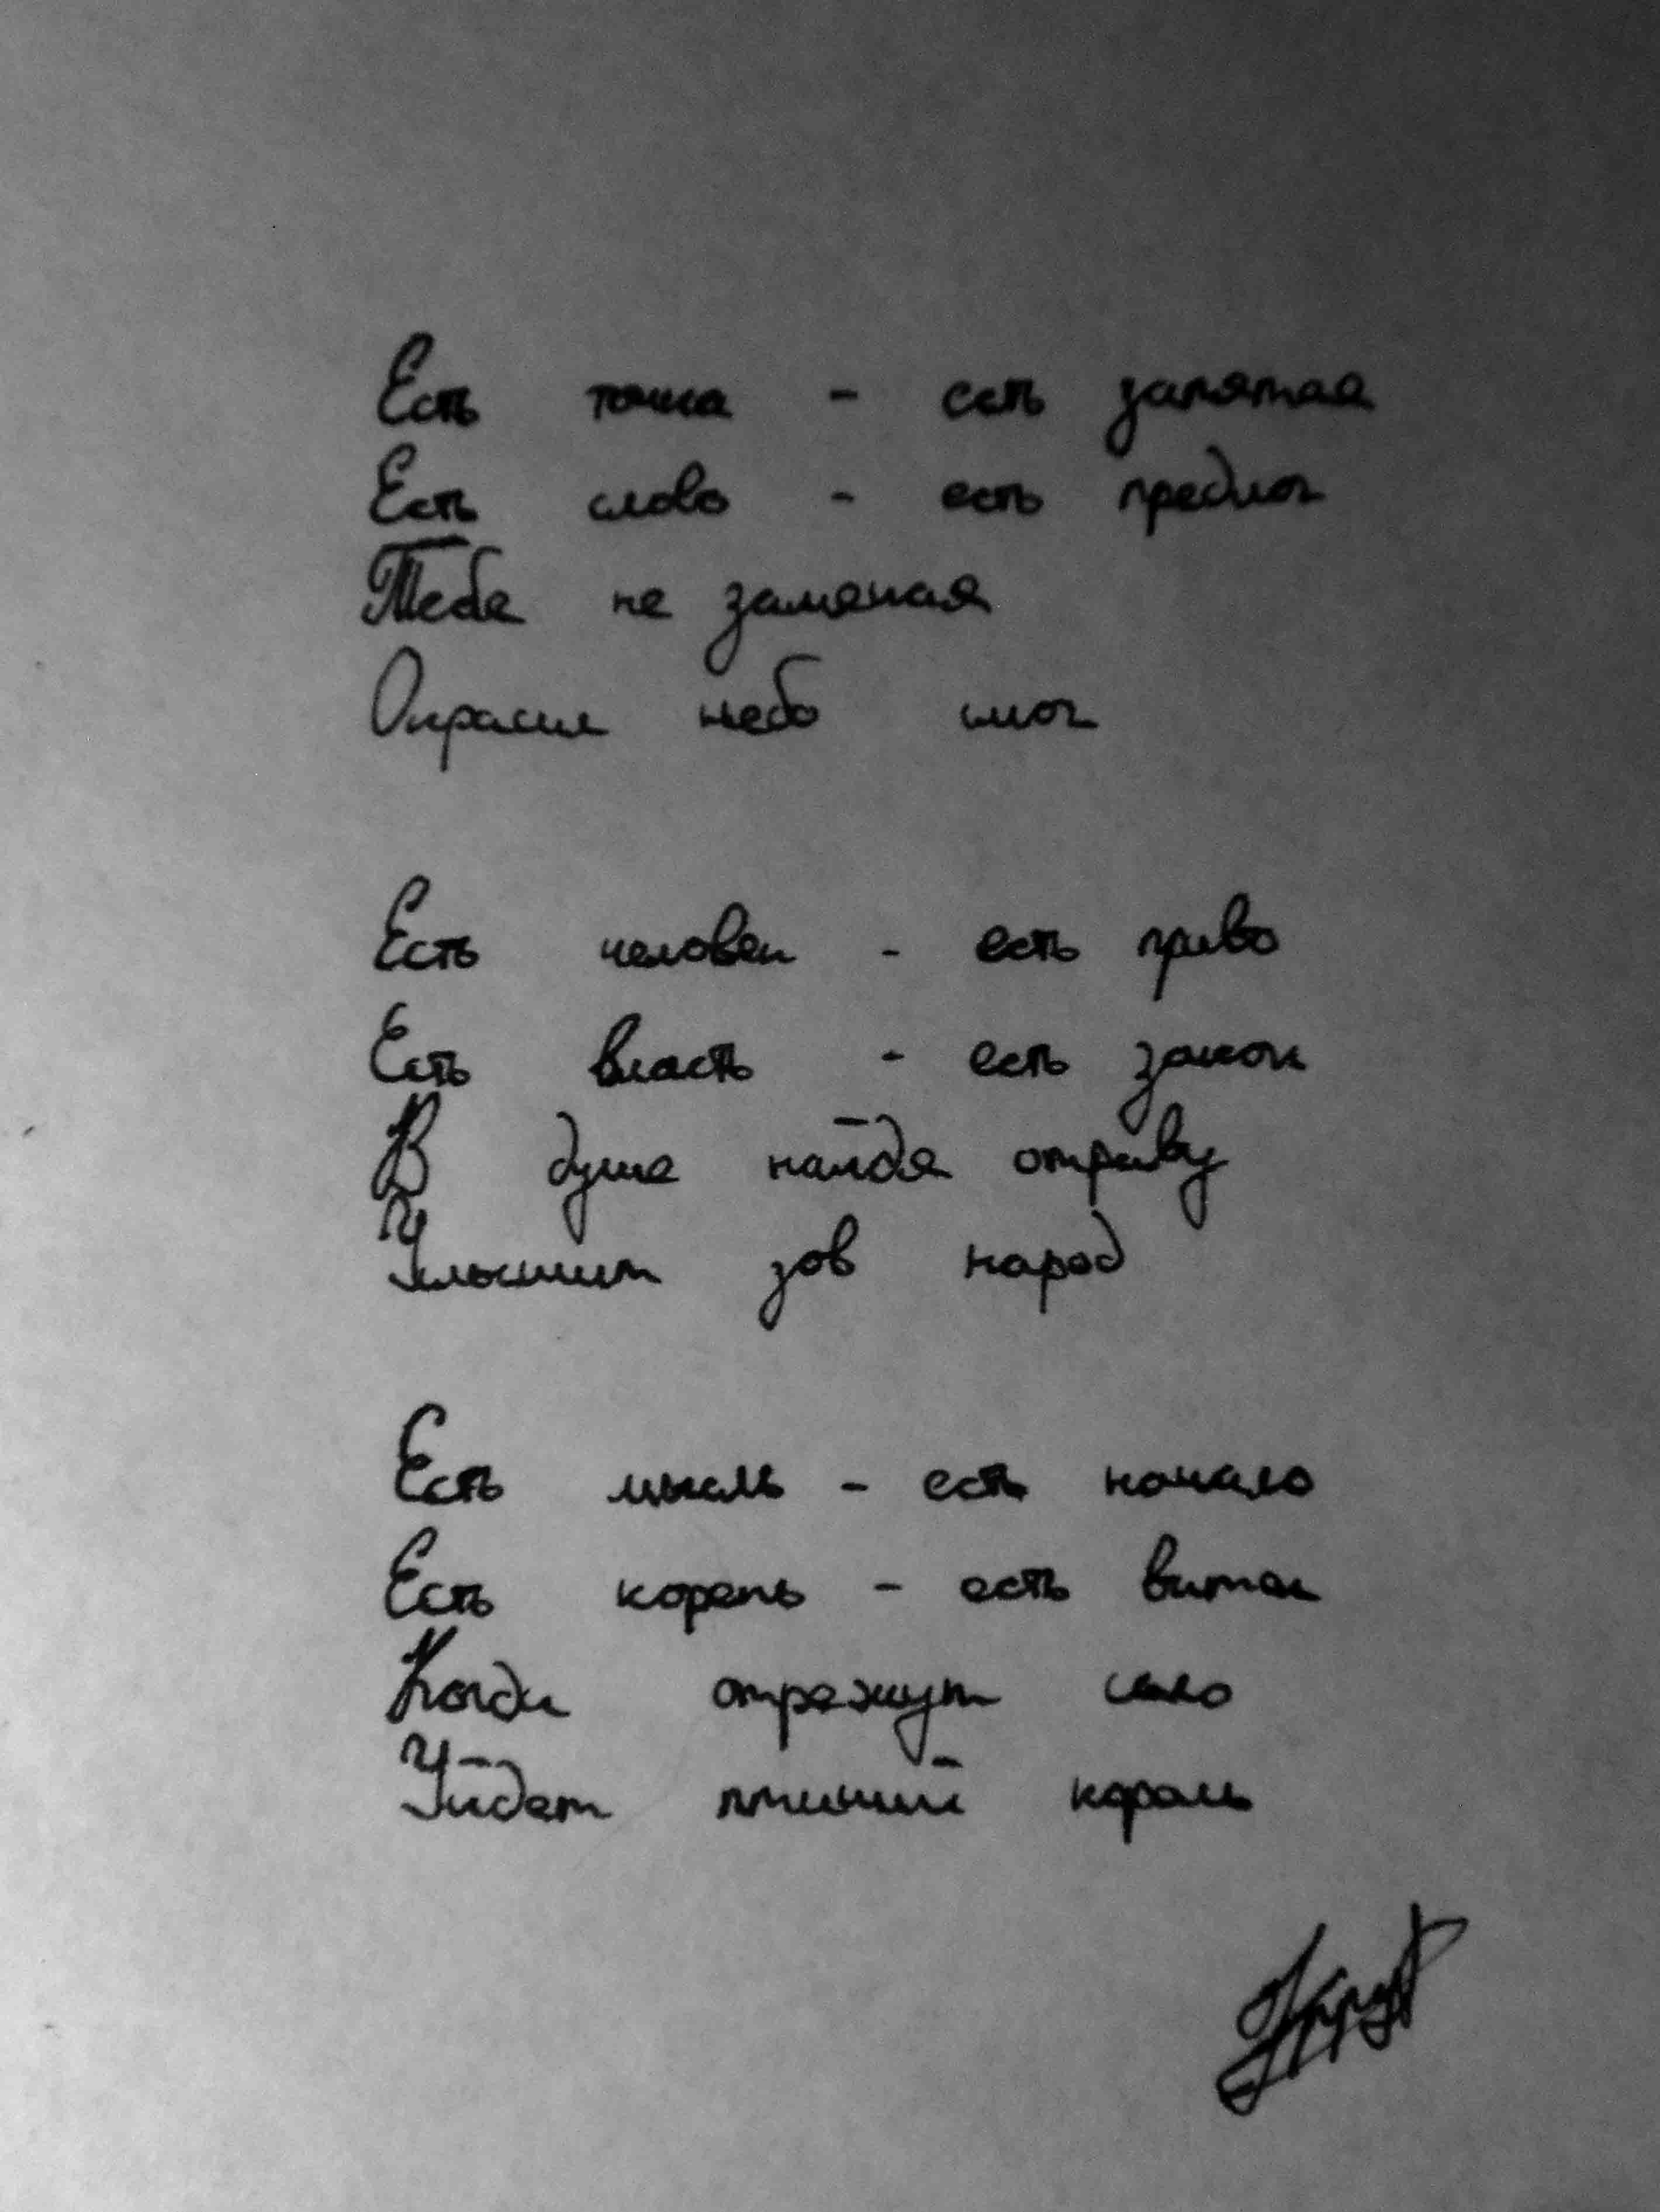 Есть точка - есть запятая
Есть слово - есть предлог
Тебе не заменая
Окрасил небо смог
Есть человек - есть право
Есть власть - есть закон
В душе найдя отраву
Услышит зов народ
Есть мысль - есть начало
Есть корень - есть виток
Когда отрежут
Уйдет птичий король